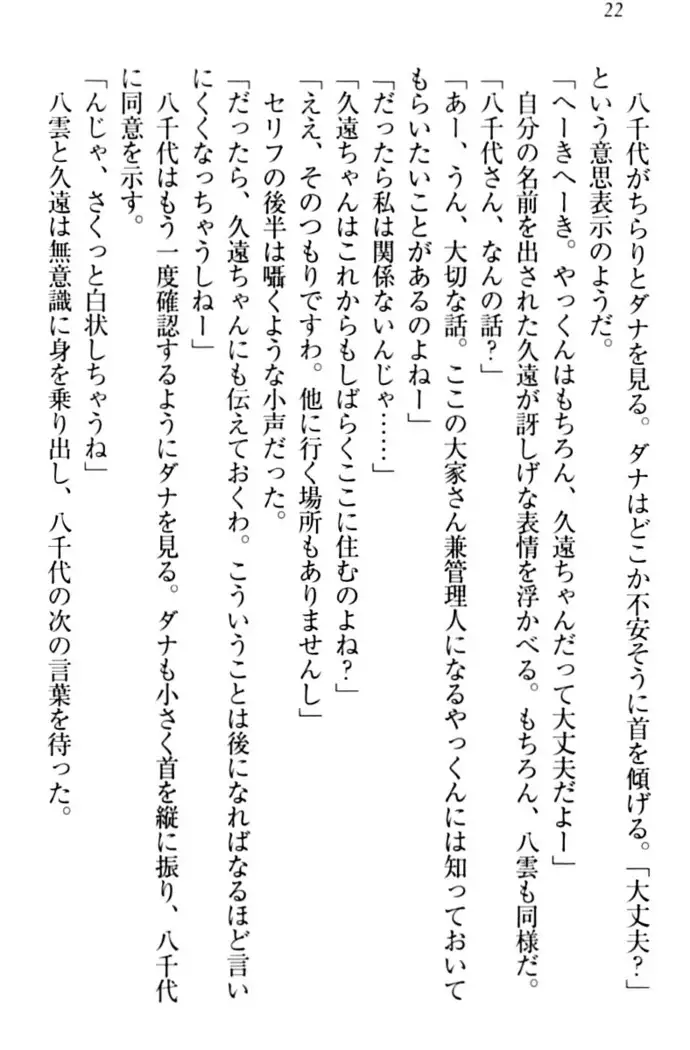 22
八千代がちらりとダナを見る。ダナはどこか不安そうに首を傾げる。「大丈夫？」
という意思表示のようだ。
「へーきへーき。やっくんはもちろん、久遠ちゃんだって大丈夫だよー」
自分の名前を出された久遠が訝しげな表情を浮かべる。もちろん、八雲も同様だ。
「八千代さん、なんの話？」
「あー、うん、大切な話。ここの大家さん兼管理人になるやっくんには知っておいて
もらいたいことがあるのよねー」
「だったら私は関係ないんじゃ……」
「久遠ちゃんはこれからもしばらくここに住むのよね？」
「ええ、そのつもりですわ。他に行く場所もありませんし」
セリフの後半は囁くような小声だった。
「だったら、久遠ちゃんにも伝えておくわ。こういうことは後になればなるほど言い
にくくなっちゃうしねー」
八千代はもう一度確認するようにダナを見る。ダナも小さく首を縦に振り、八千代
に同意を示す。
「んじゃ、さくっと白状しちゃうね」
八雲と久遠は無意識に身を乗り出し、八千代の次の言葉を待った。